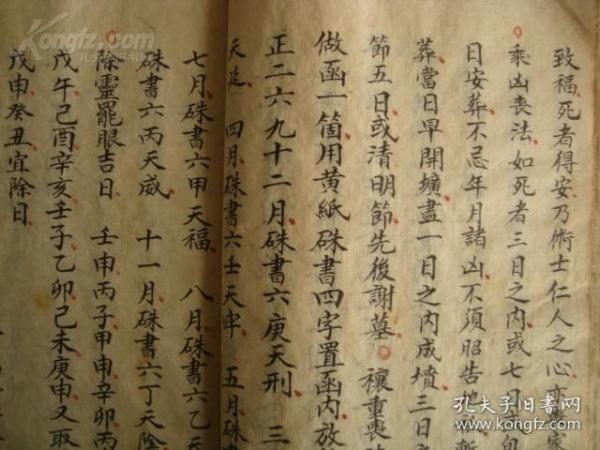 致福死者得安乃術士仁人之心亦
乘凶喪法如死者三日之内或七日
日安葬不忌年月諸凶不須昭告
葬當日早開擴盡一日之内成墳三日之
節五日或清明節先後謝墓 禳重喪
做函一箇用黄紙硃書四字置函内放
正二六九十二月硃書六庚天刑 三
天廷 四月硃書六壬天牢 五月硃
七月硃書六甲天福 八月硃書六乙天
硃書六丙天威 十一月硃書六丁天陰
除靈罷眼吉日 壬申丙子甲申辛卯丙
戊午己酉辛亥壬子乙卯己未庚申又取
戊申癸丑宜除日
Kongfz.com
孔夫子旧书网
www.kongfz.com